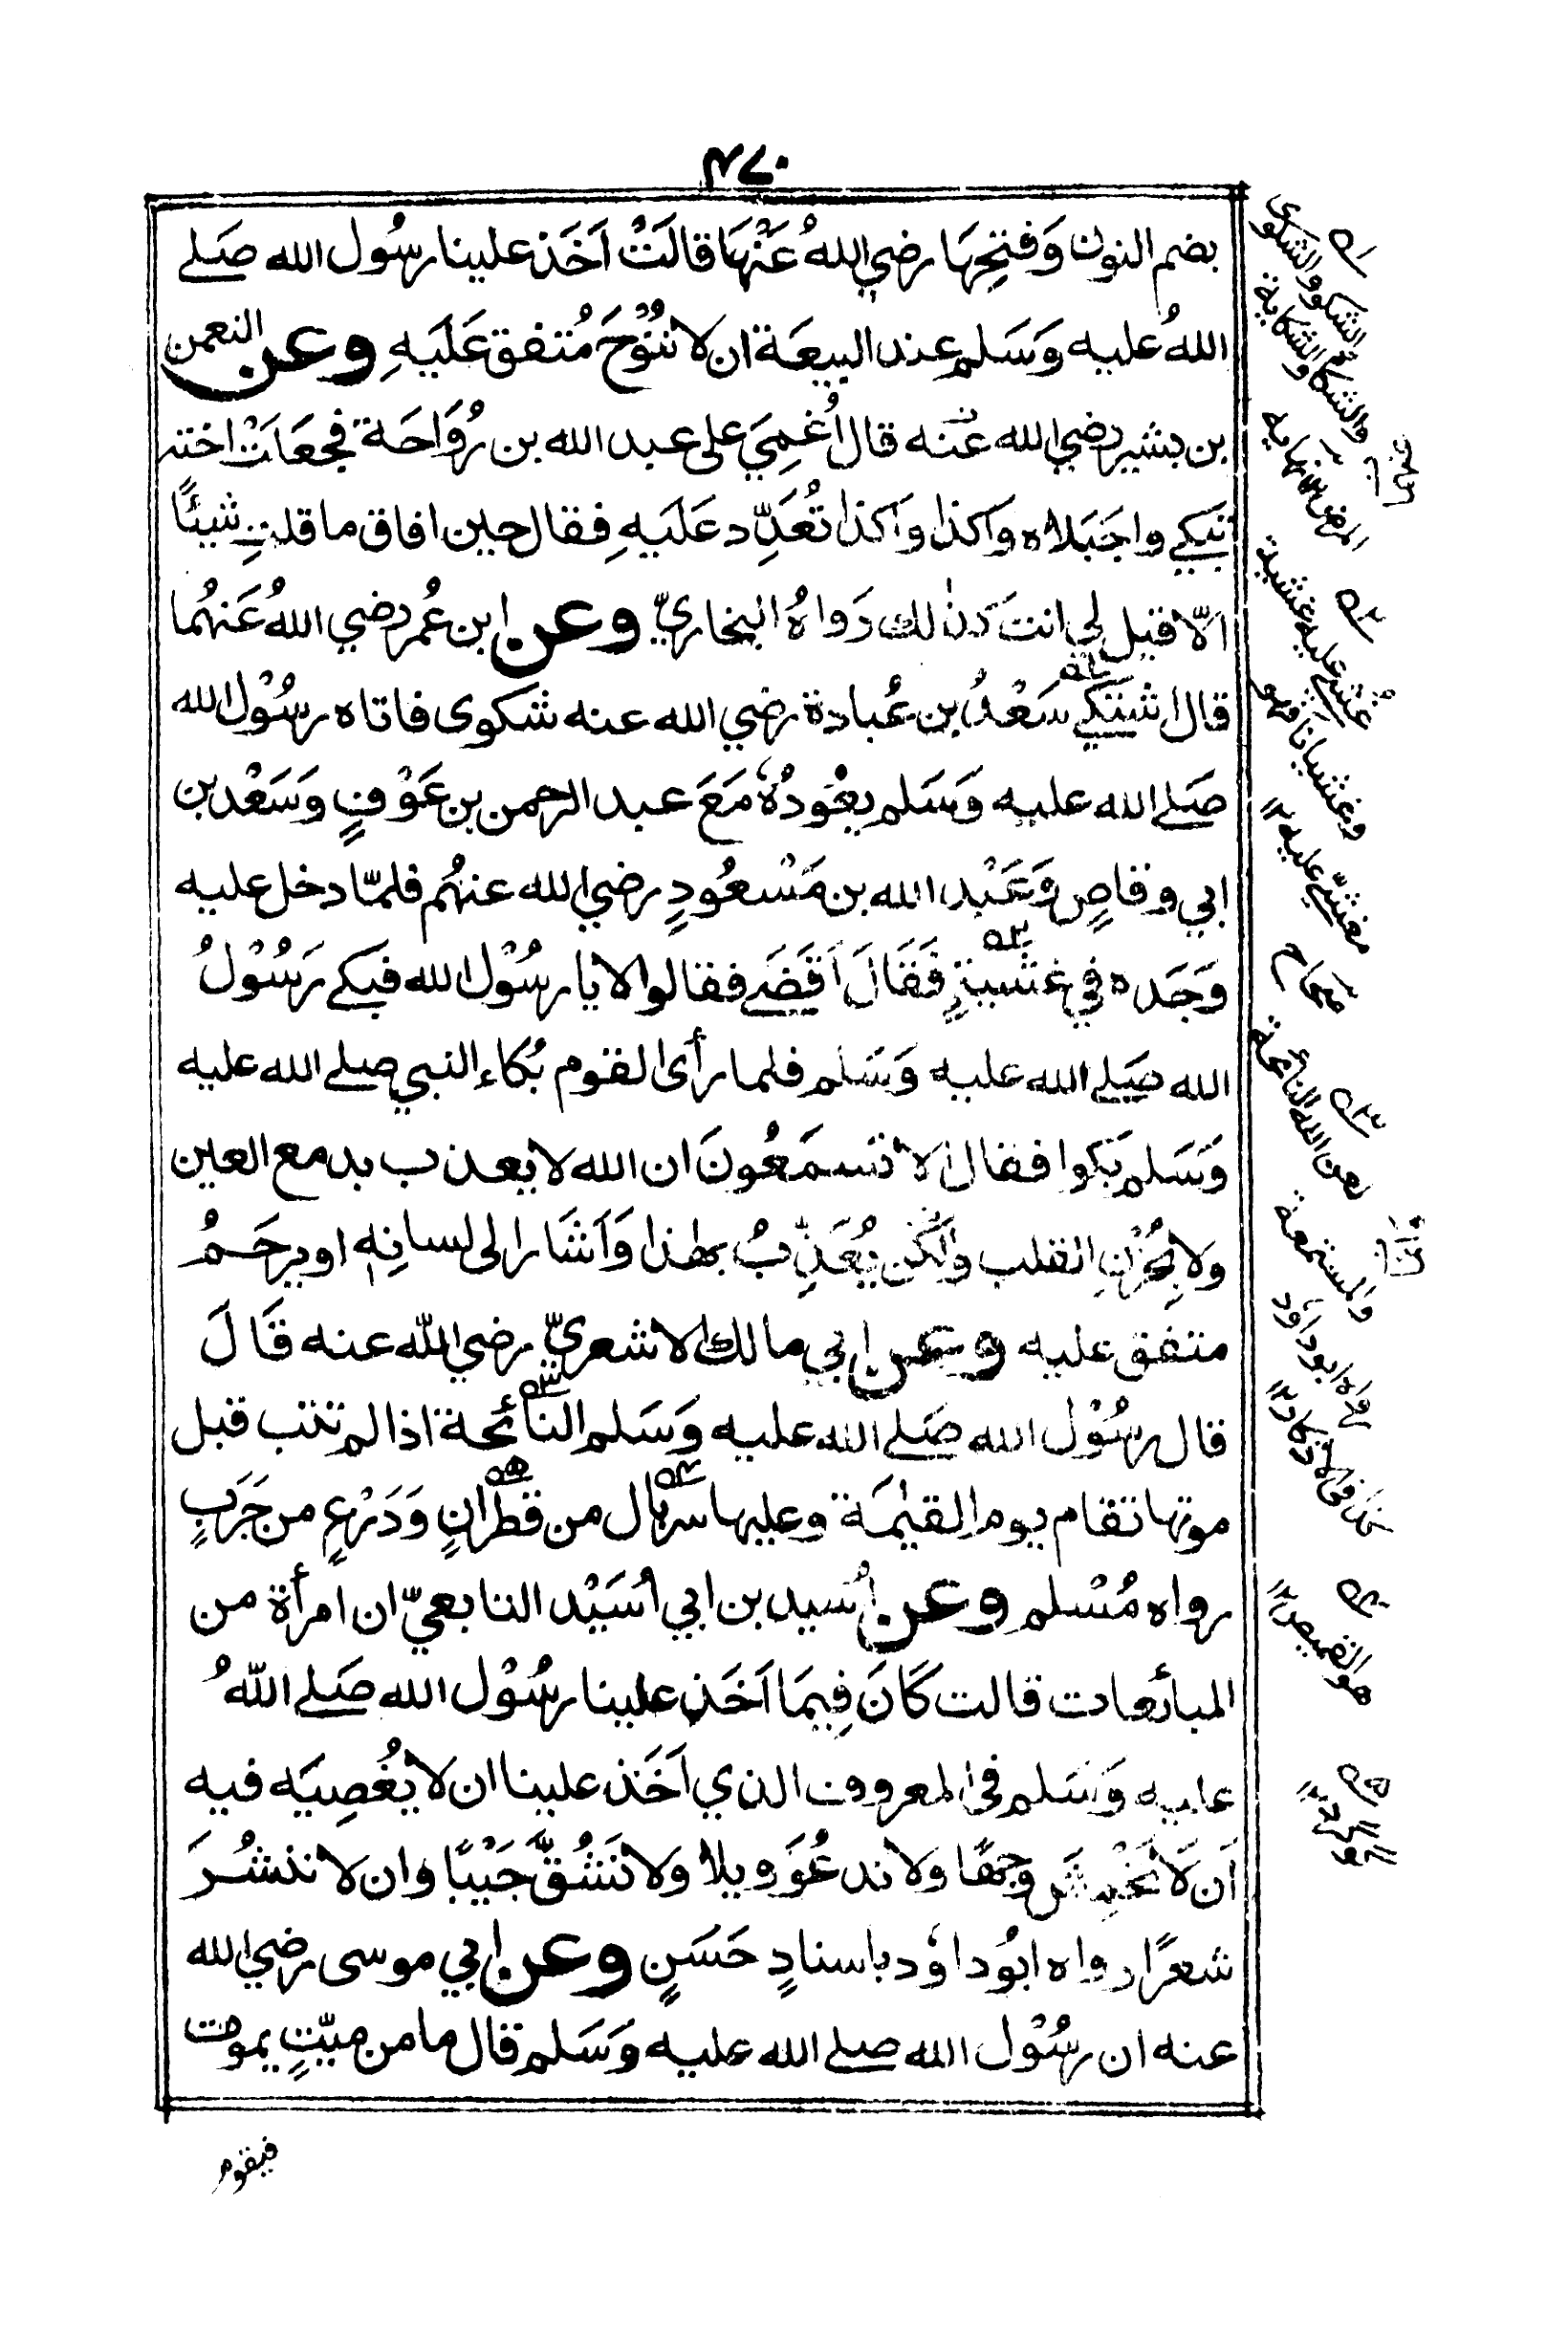 ٤٧٠
بضم النون وَفتحِهَا رضي اللهُ عَنْهَا قالَتْ اَخَذ علينا رسُول الله صَلى
اللهُ عليه وَسَلم عند البيعَة ان لا نَنُوْحَ مُتفق عَلَيهِ وعن النعمن
بن بشير رضي الله عنه قال اُغمِيَ على عبد الله بن رُوَاحَة فجعَلَتْ اختہ
تبكي واجَبَلاه واكذا واكذا تُعَدِّد عَلَيهِ فقال حين افاق ما قلتِ شيئًا
الّا قيل لي انتَ كذٰلك رَواهُ البخاريّ وعن ابن عُمر رضي اللهُ عَنهُما
قال اشتكى سَعْدُ بن عُبادة رضي الله عنه شكوى فاتاه رسُوْل الله
صَلى الله عليه وَسَلم يعُوْدُهٗ مَعَ عبد الرحمن بن عَوْفٍ وَسَعْد بن
ابي وقاصٍ وَعَبْد الله بن مَسْعُودٍ رضي الله عنهُم فلمّا دخل عليه
وَجَده في غشيةٍ فَقَالَ اَقَضَى فقالوا لا يا رسُوْل الله فبكى رَسُوْلُ
الله صَلى الله عليه وَسَلم فلما رأى القوم بُكاء النبي صلى الله عليه
وَسَلم بَكوا فقال الا تسمَعُونَ ان الله لا يعذب بدمع العين
ولا بِحُزْنِ القلب وَلٰكن يُعَذِّبُ بهٰذا وَاَشَار الى لسانِهٖ او يرحَمُ
متفق عليه وعن ابي مالك الاشعريّ رضي الله عنه قَالَ
قال رسُوْل الله صَلى الله عليه وَسَلم النائحة اذا لم تتب قبل
موتها تقام يوم القيٰمَة وعليها سربال من قطرانٍ وَدَرْعٍ من جَرَبٍ
رواه مُسْلم وعن اُسيد بن ابي اُسَيْد التابعيّ ان امرأة من
المبائعات قالت كَانَ فِيمَا اَخَذ علينا رسُوْل الله صَلى اللّهُ
عليه وَسَلم في المعروف الذي اَخَذ علينا ان لا نعْصِيَه فيه
اَن لَا نَخْمِشَ وَجهًا ولا ندعُوَ ويلا ولا نَشُقَّ جَيْبًا وان لا ننشُرَ
شعرًا رواه ابُو داوٗد باسنادٍ حَسَنٍ وعن ابي موسى رضي الله
عنه ان رسُوْل الله صلى الله عليه وَسَلم قال ما من ميّتٍ يموت
فيقوم
١
الشكو والشكوى
والشكاة والشكاية
المرض نهاية
٢
غُشي عليه غشية
وغشيانا فهو
مغشيّ عليه
صحاح
٣
لعن الله النائحة
والمستمعة
رواه ابو داود
٤
هو القميص
٥